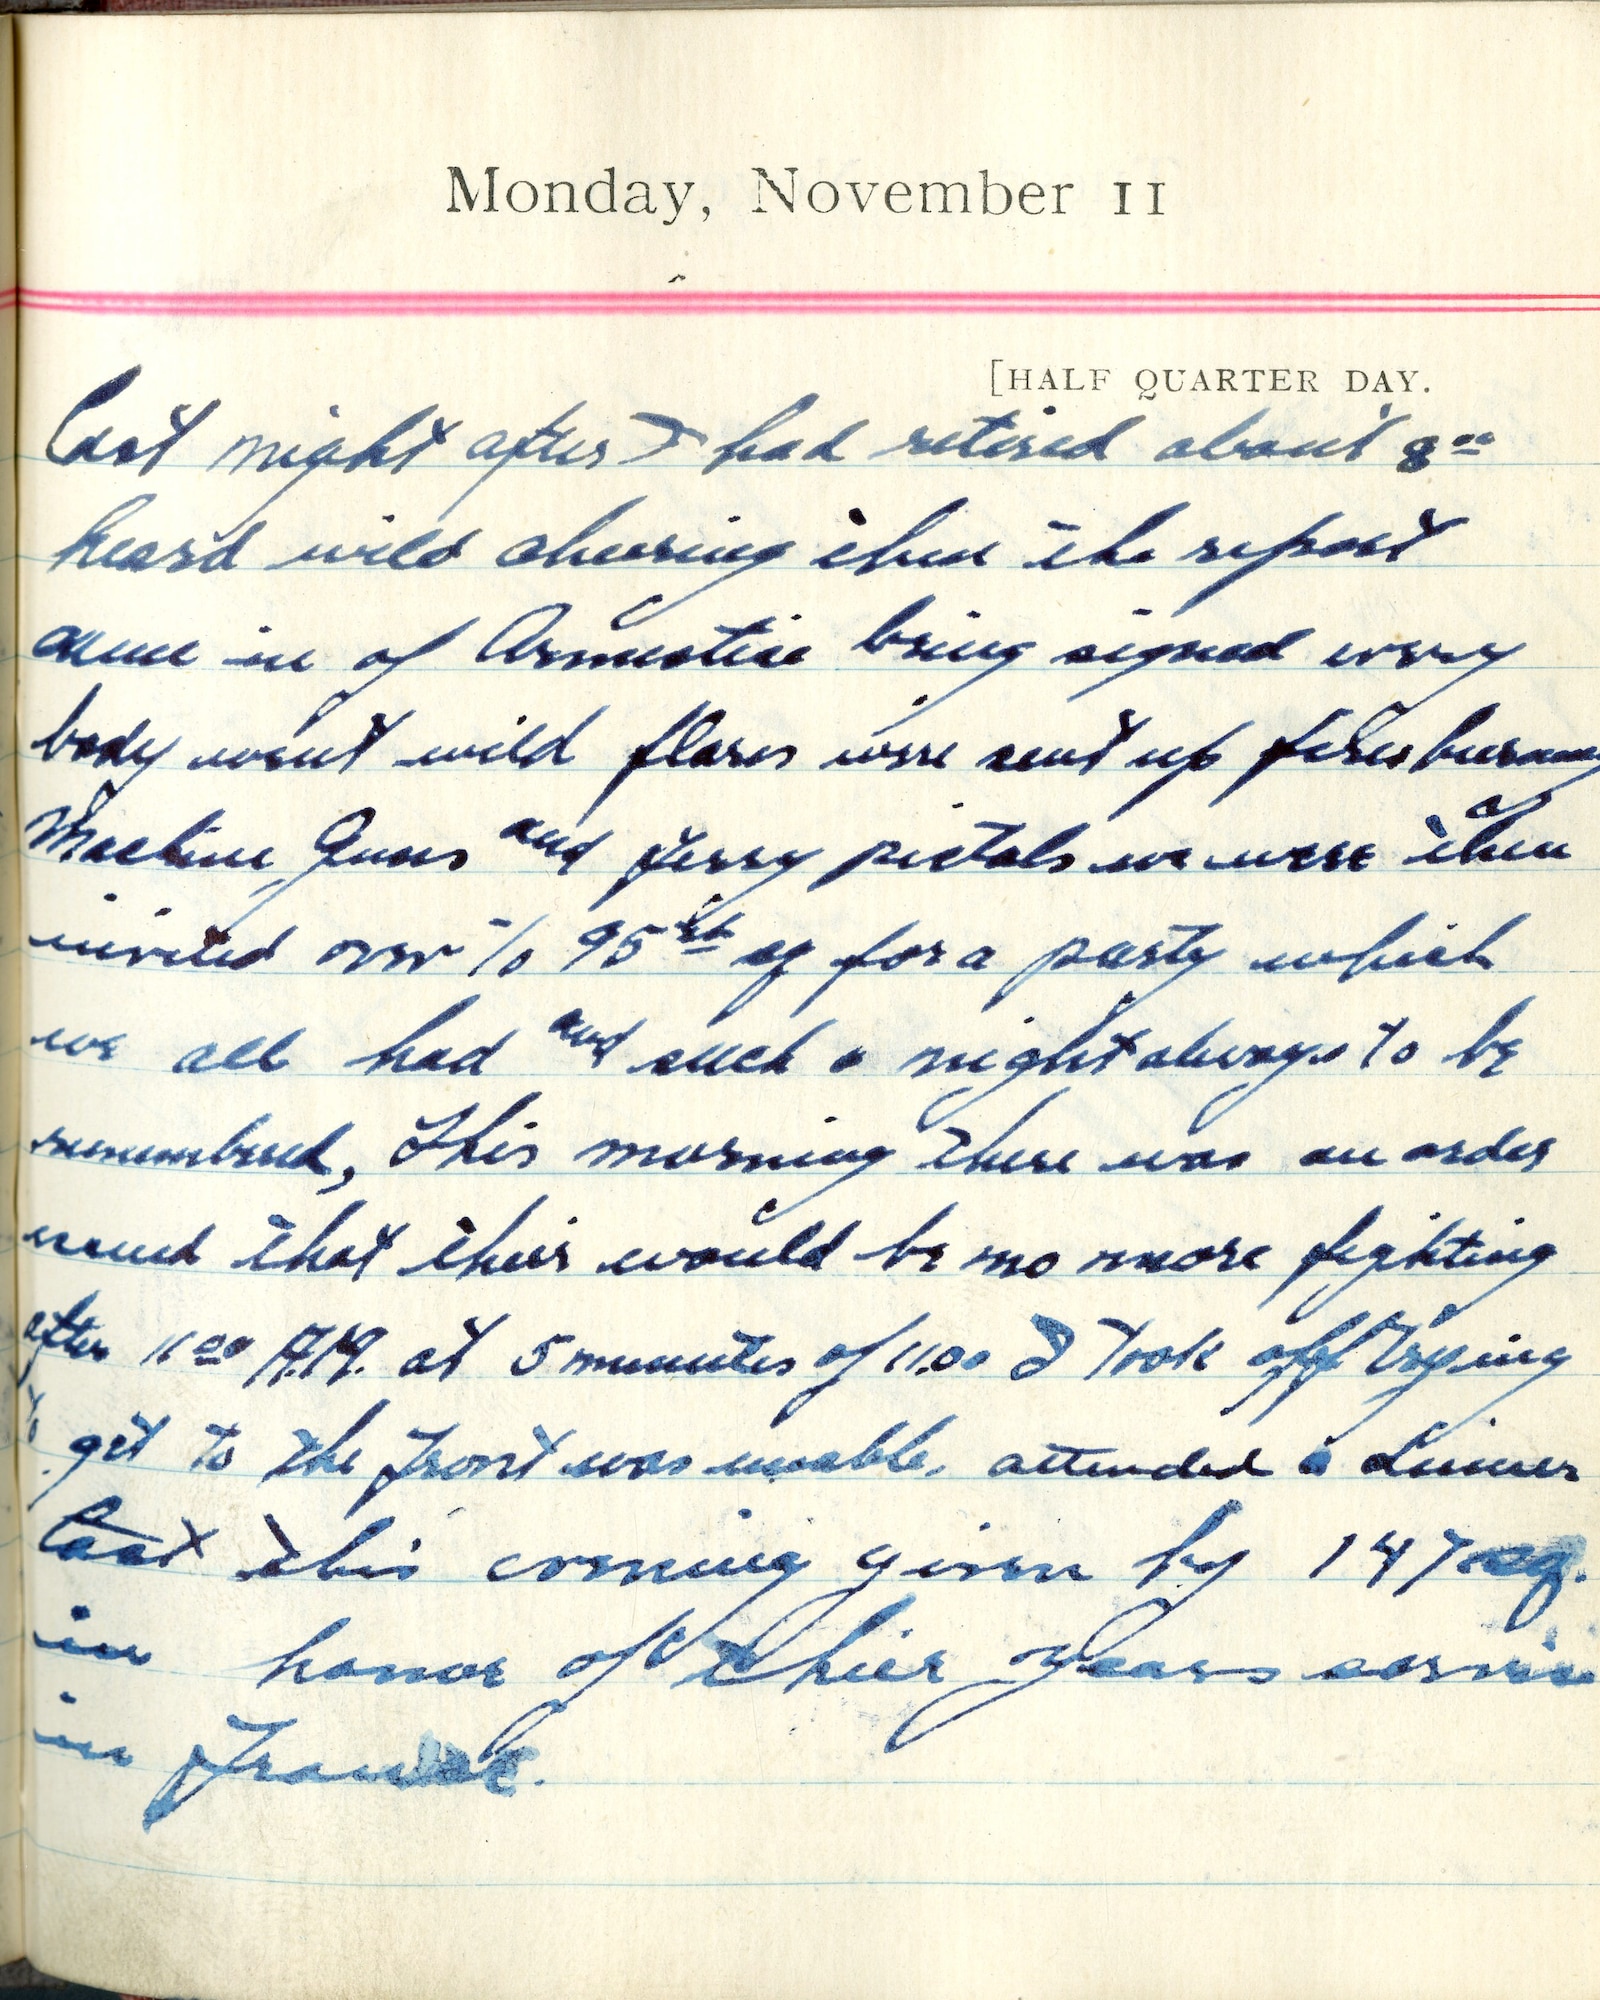 Monday, November 11
[HALF QUARTER DAY.
Last night after I had retired about 8 00
heard wild cheering then the report
came in of Armistice being signed every
body went wild flares were sent up fires burning
Machine Guns and Very pistols we were then
invited over to 95th sq for a party which
we all had and such a night always to be
remembered, This morning there was an order
issued that their would be no more fighting
after 11 00 A.M. at 5 minutes of 11.00 I took off trying
to get to the front was unable. attended a dinner
last this evening given by 147 sq.
in honor of thier years service
in France.